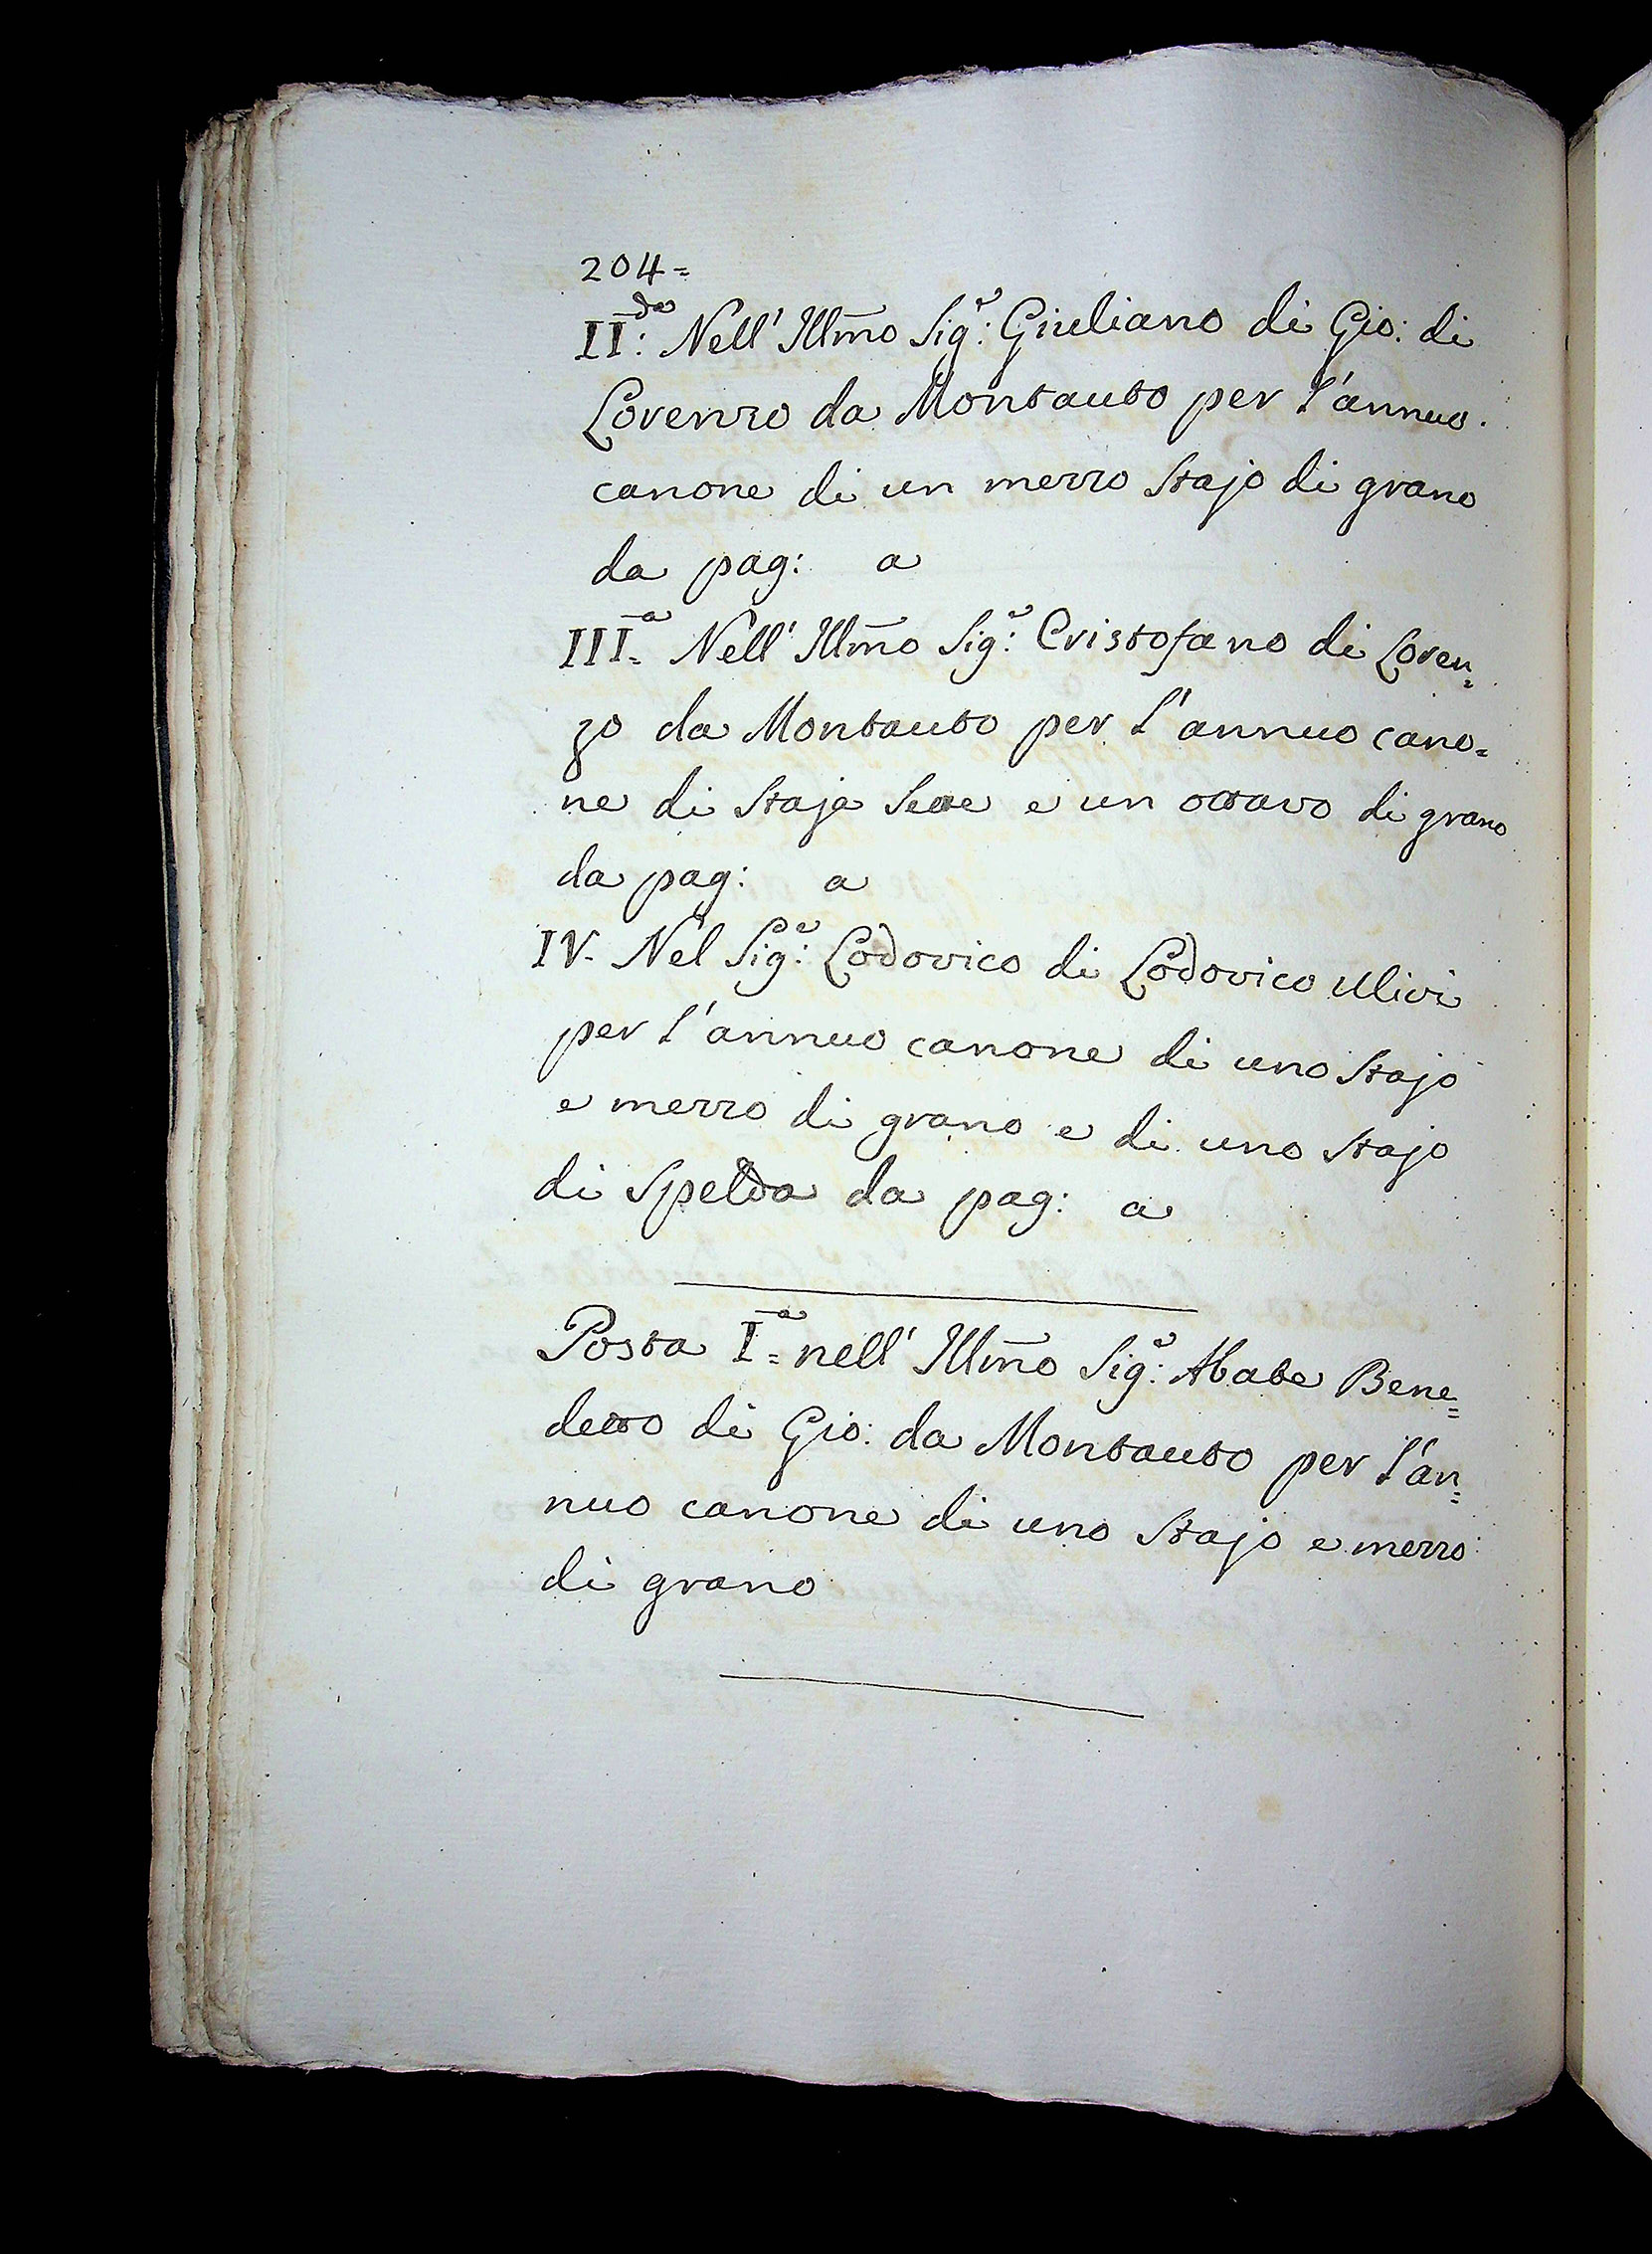 204=
II:da Nell' Illm̃o Sig:e Giuliano di Gio: di
Lorenzo da Montauto per l'annuo
canone di un mezzo Stajo di grano
da pag: a
III=a Nell' Illm̃o Sig:e Cristofano di Loren=
zo da Montauto per l'annuo cano=
ne di Staja Sette e un ottavo di grano
da pag: a
IV- Nel Sig:e Lodovico di Lodovico Ulivi
per l'annuo canone di uno Stajo
e mezzo di grano e di uno Stajo
di Spelda da pag: a
Posta I=a nell' Illm̃o Sig:e Abate Bene=
detto di Gio: da Montauto per l'an=
nuo canone di uno Stajo e mezzo
di grano